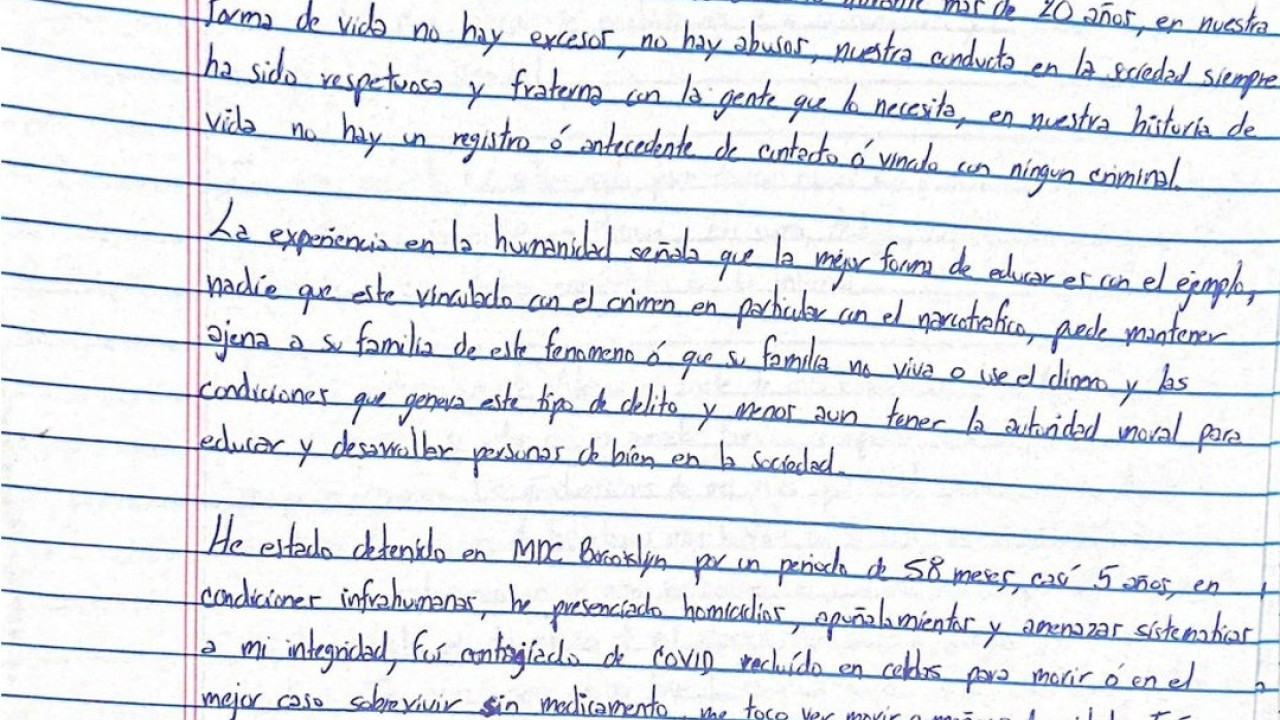 más de 20 años, en nuestra
forma de vida no hay excesos, no hay abusos, nuestra conducta en la sociedad siempre
ha sido respetuosa y fraterna con la gente que lo necesita, en nuestra historia de
vida no hay un registro ó antecedente de contacto ó vinculo con ningun criminal.
La experiencia en la humanidad señala que la mejor forma de educar es con el ejemplo,
nadie que este vinculado con el crimen en particular con el narcotrafico, puede mantener
ajena a su familia de este fenomeno ó que su familia no viva o use el dinero y las
condiciones que genera este tipo de delito y menos aun tener la autoridad moral para
educar y desarrollar personas de bien en la sociedad.
He estado detenido en MDC Broooklyn por un periodo de 58 meses, casí 5 años, en
condiciones infrahumanas, he presenciado homicidios, apuñalamientos y amenazas sistematicas
a mi integridad, fuí contagiado de COVID recluído en celdas para morir ó en el
mejor caso sobrevivir sin medicamento, me toco ver morir a